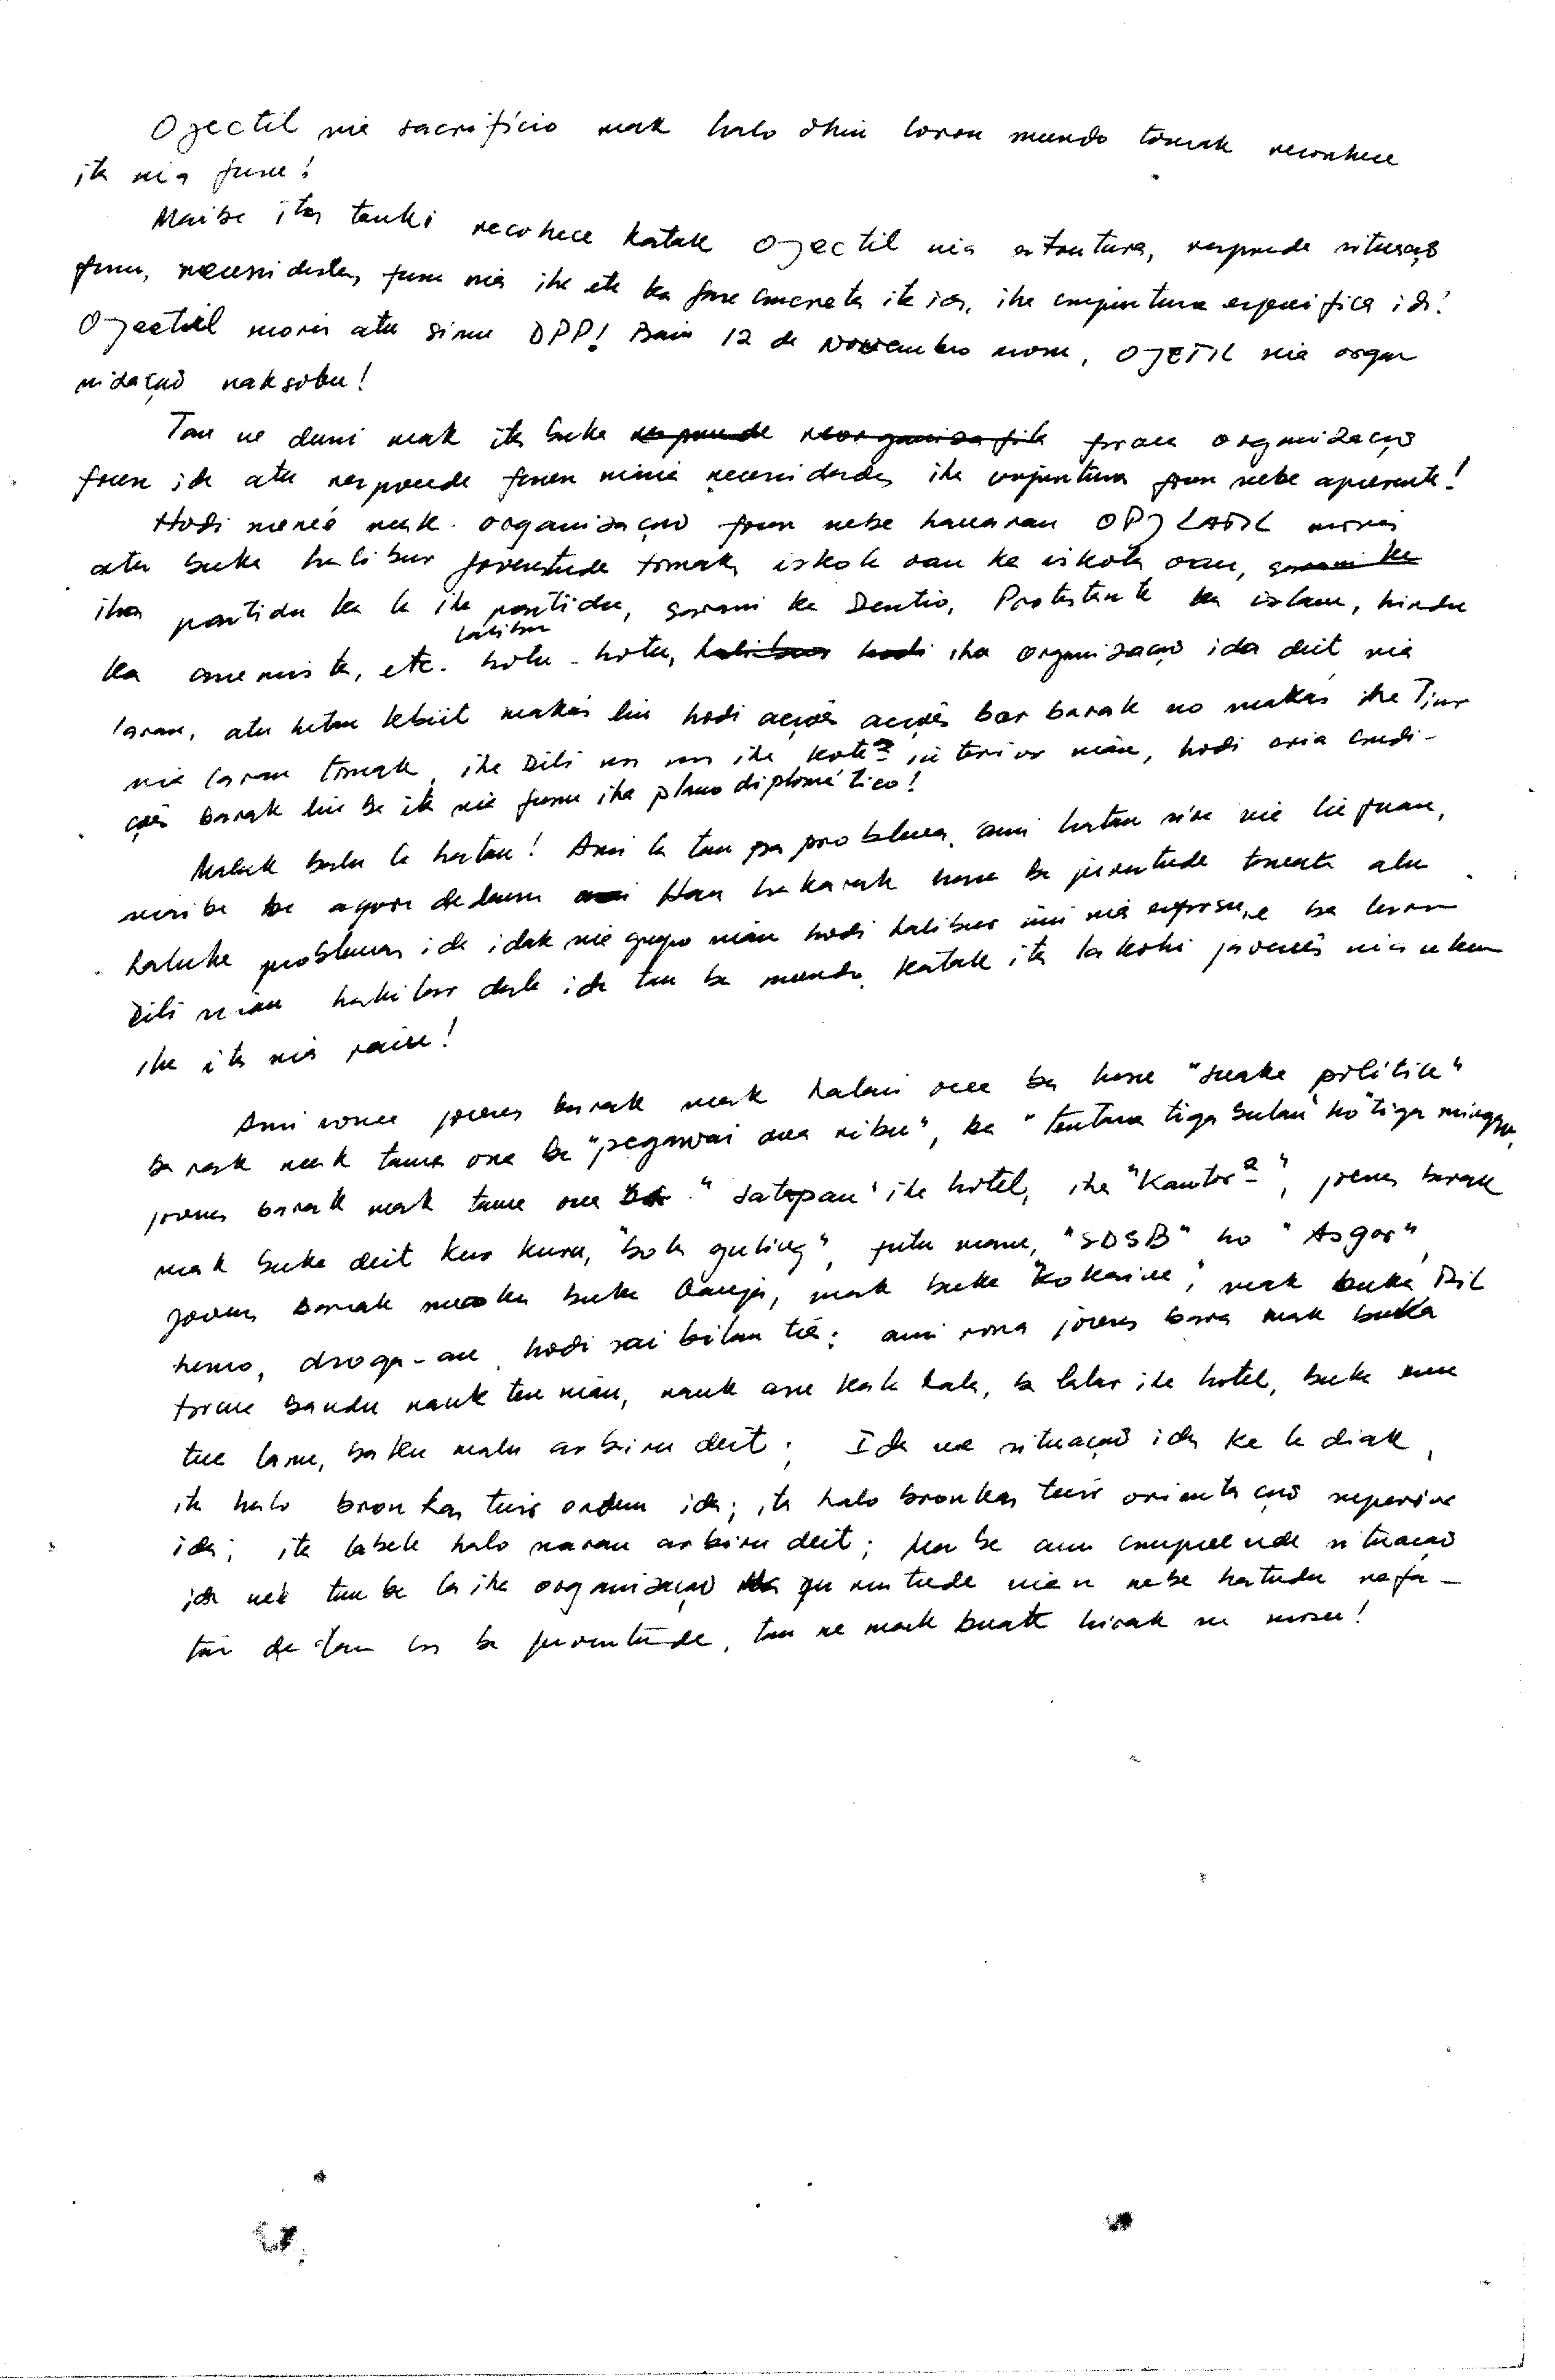 Ojectil nia sacrifício mak halo ohin loron mundo tomak reconhece
ita nia funu!
Maibe ita tenki reconhece katak Ojectil nia estrutura, responde situasaõ
funu, necesidades funu nia iha eta ka fase concreta ida ida, iha conjuntura especifica ida!
Ojectil moris atu simu DPP! Bain 12 de Novembro mosu, OJETIL nia orga
nidaçaõ naksobu!
Tan ne duni mak ita buka responde reorganiza fila forau organizaçaõ
foun ida atu responde funu ninia necesidades iha conjuntura foun nebe apresenta!
Hodi mene'e mak organizaçaõ foun nebe hanaran OPJLATIL moris
atu buka halibur joventude tomak, iskola oan ka iskola oan, sarani ka
iha partidu ka la iha partidu, sarani ka Dentio, Protestante ka islam, hindu
halibur
ka comunista, etc. hotu-hotu, halibur hodi iha organizaçaõ ida deit nia
laran, atu hetan kbiit makás liu hodi acçoẽs acçoẽs bar barak no makás iha Timor
nia laran tomak, iha Dili no iha kota2 interior nian, hodi cria condi-
çoẽs barak liu ba ita nia funu iha plano diplomático!
Maluk balu la hatan! Ami la tau ba problema, ami hatan sira nia liafuan,
maibe be agora dedaun ami Hau hakarak husu ba juventude tomak atu
haluha problemas ida idak nia grupo nian hodi halibur imi nia esforsu, e ba loron
Dili nian hakilar dala ida tan ba mundo, katak ita la kohi javanês nia ukun
iha ita nia rain!
Ami rona jovens barak mak halai ona ba husu "suaka politik"
barak mak tama ona ba "pegawai dua ribu", ka "tentara tiga bulan" ho "tiga minggu",
jovens barak mak tama ona ba "satapan" iha hotel, iha "Kantor2", jovens barak
mak buka deit kuru kuru, "bola guling", futu manu, "SDSB" ho "Asgor",
jovens barak maka buka Ganja, mak buka "kokaine", mak buka Pil
hemo, droga-an hodi sai bilan tiá; ami rona jovens bara mak buka
forma bandu nauk ten nian, nauk osan kala kala, ba lalar iha hotel, buka emu
tua lanu, baku malu arbiru deit; Ida ne situaçaõ ida ke la diak,
ita halo bronkas tuir ordem ida; ita halo bronkas tuir orientaçaõ superior
ida; ita labele halo naran arbiru deit; Mabe ami compreende situaçaõ
ida ne'e tan ba la iha organizaçaõ juventude nian nebe hatudu nafa-
tin dalan los ba juventude, tan ne mak buat hirak ne mosu!